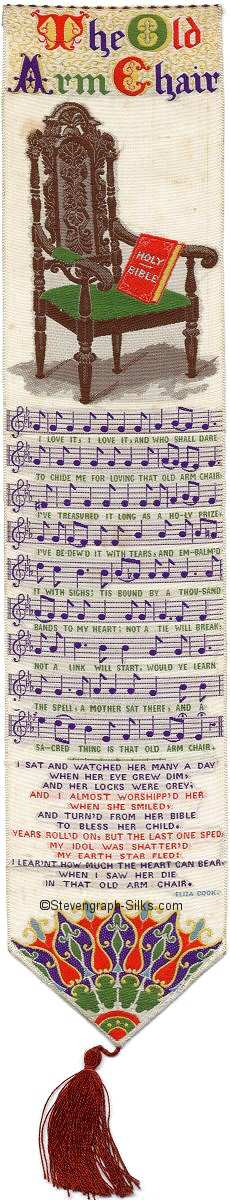 The Old
Arm Chair
HOLY
BIBLE
I LOVE IT; I LOVE IT; AND WHO SHALL DARE
TO CHIDE ME FOR LOVING THAT OLD ARM CHAIR;
I'VE TREASURED IT LONG AS A HO-LY PRIZE;
I'VE BE-DEW'D IT WITH TEARS; AND EM-BALM'D
IT WITH SIGHS; TIS BOUND BY A THOU-SAND
BANDS TO MY HEART; NOT A TIE WILL BREAK;
NOT A LINK WILL START, WOULD YE LEARN
THE SPELL; A MOTHER SAT THERE; AND A
SA-CRED THING IS THAT OLD ARM CHAIR.
I SAT AND WATCHED HER MANY A DAY
WHEN HER EYE GREW DIM;
AND HER LOCKS WERE GREY;
AND I ALMOST WORSHIPP'D HER
WHEN SHE SMILED;
AND TURN'D FROM HER BIBLE
TO BLESS HER CHILD.
YEARS ROLL'D ON; BUT THE LAST ONE SPED;
MY IDOL WAS SHATTER'D
MY EARTH STAR FLED;
I LEARNT HOW MUCH THE HEART CAN BEAR,
WHEN I SAW HER DIE
IN THAT OLD ARM CHAIR.
ELIZA COOK.
©Stevengraph-Silks.com